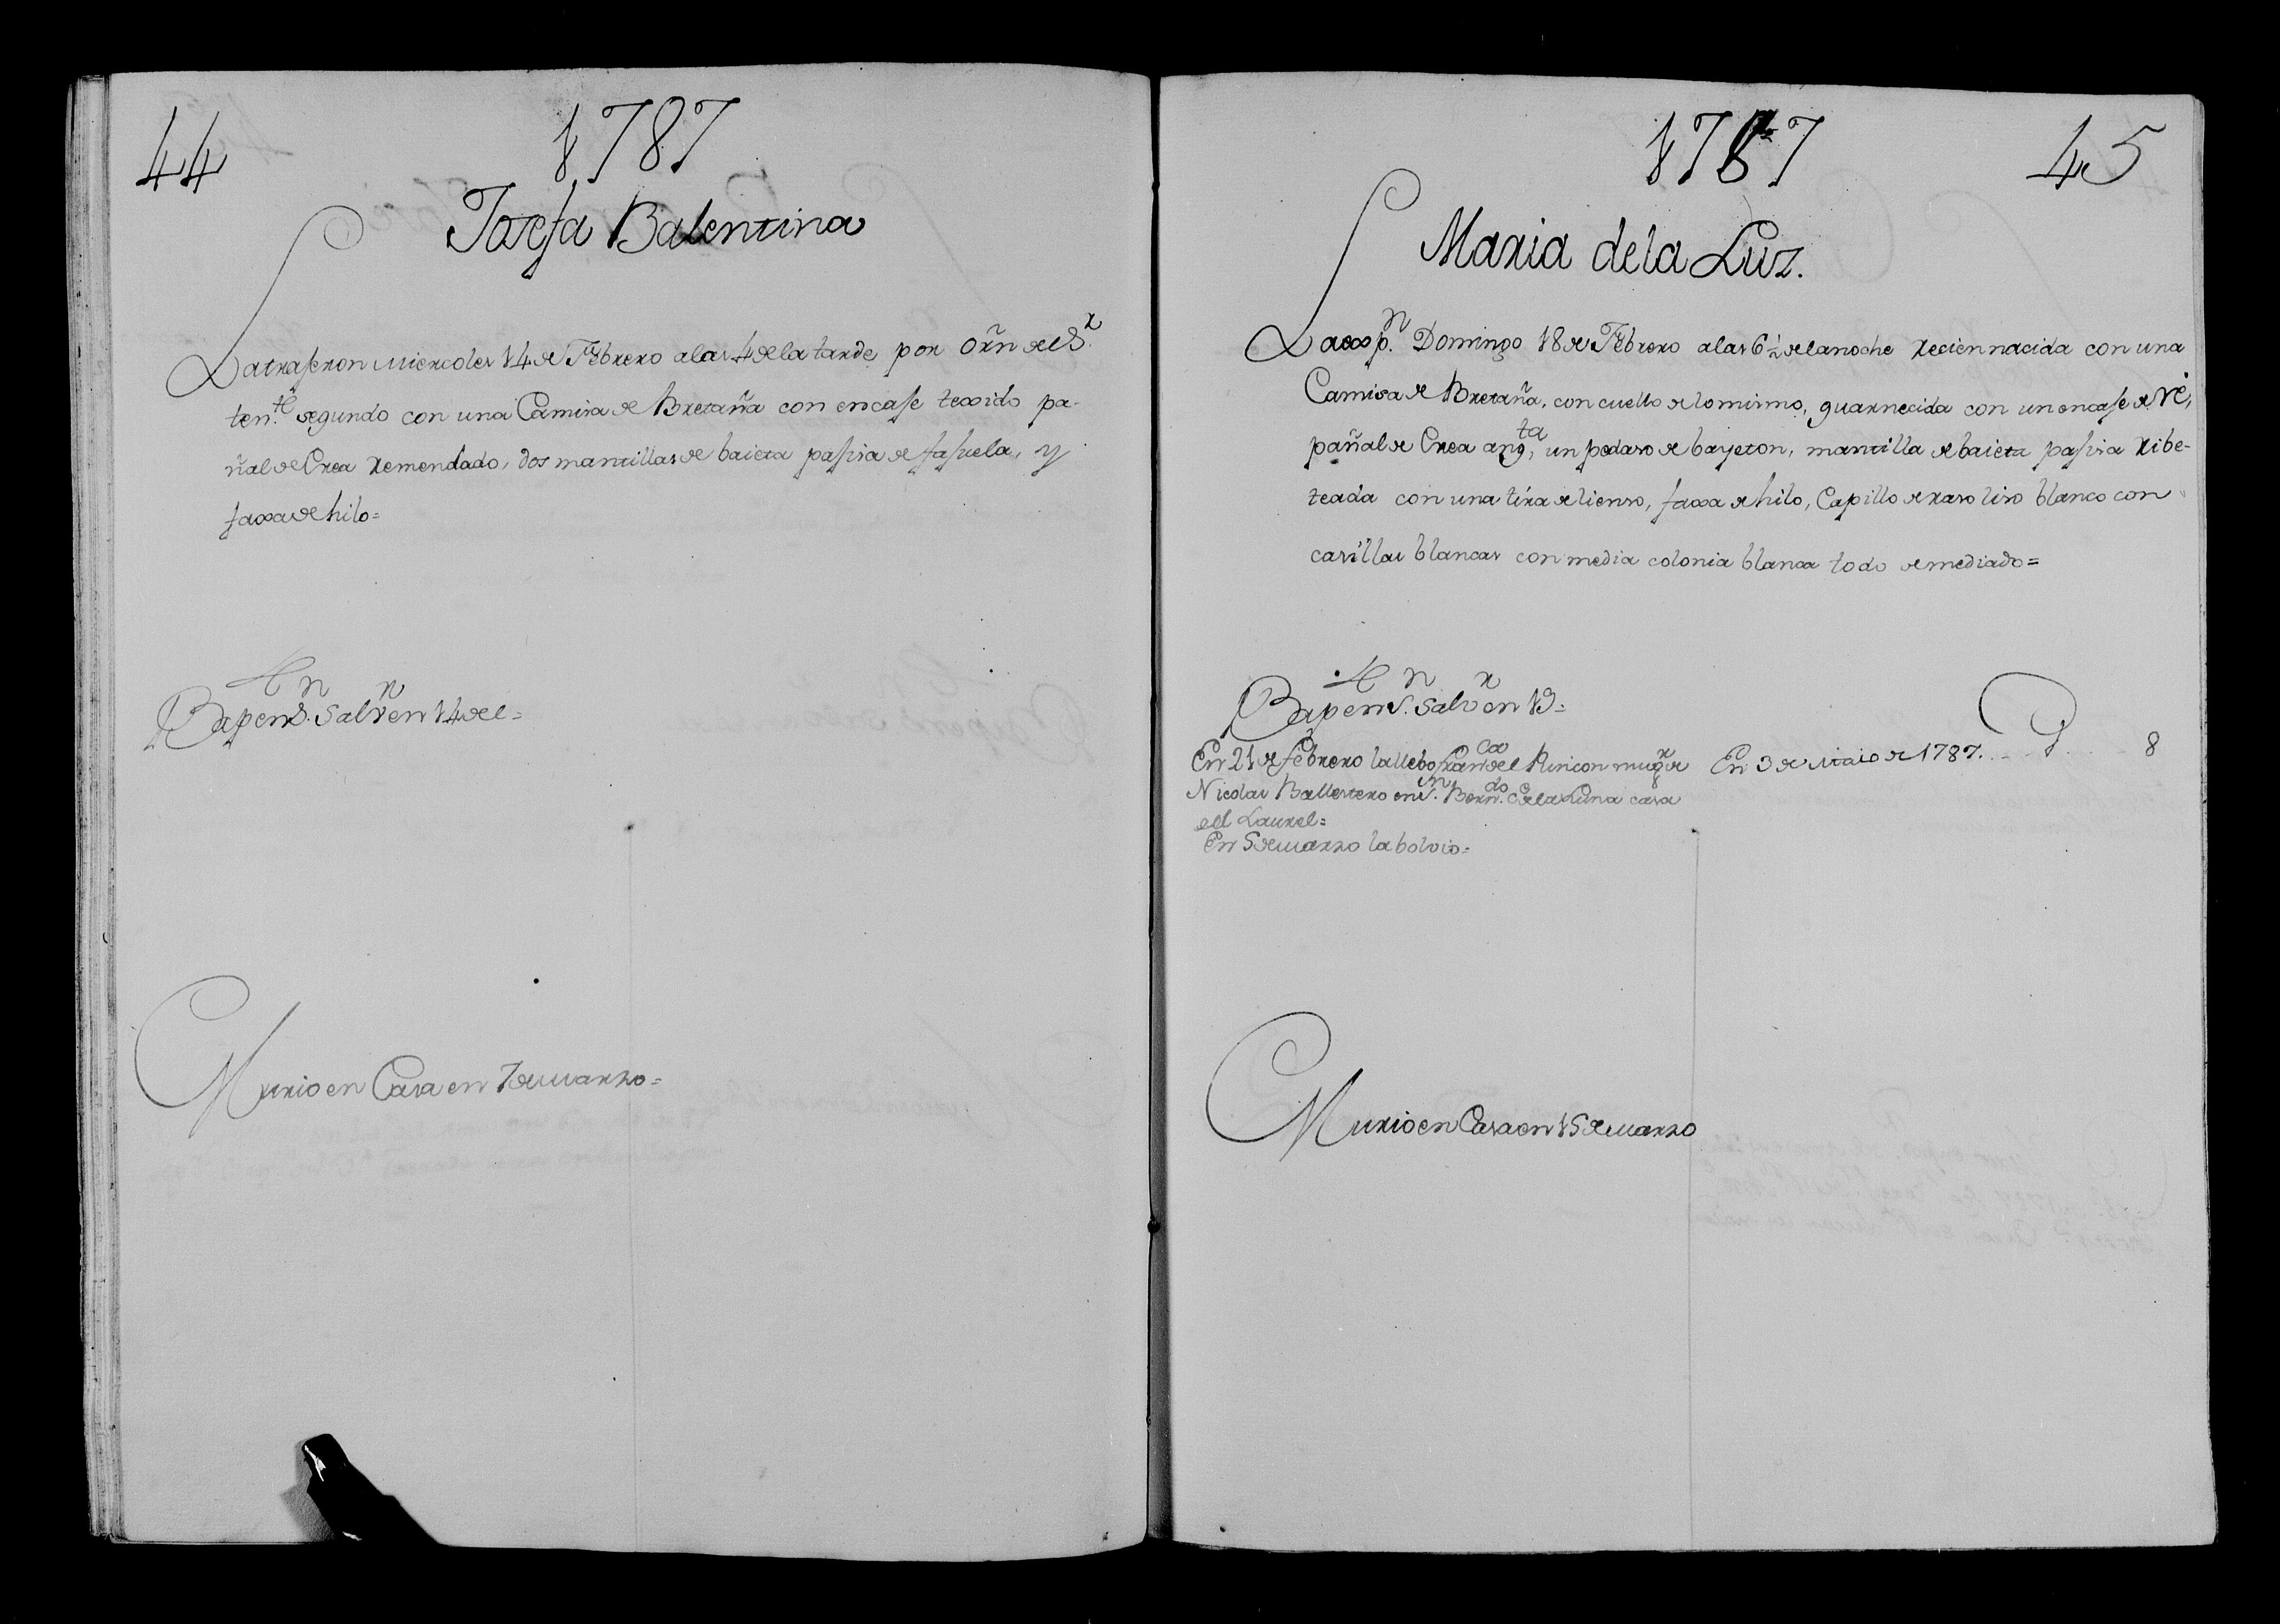 44
1787
Josefa Balentina
La trageron Miercoles 14 de Febrero a las 4 de la tarde por orñ. del S.r
ten.te segundo con una Camisa de Bretaña con encage texido pa-
ñal de Crea remendado, dos mantillas de baieta pagisa de fajuela, y
faxa de hilo=
Bap.da en S.n Salv.r en 14 del=
Murio en Casa en 7 de Marzo=
1787
45
Maria de la Luz.
La exp.n Domingo 18 de Febrero a las 6 1/2 de la noche recien nacida con una
Camisa de Bretaña, con cuello de lo mismo, guarnecida con un encage de re,
pañal de Crea ang.ta, un pedaso de bayeton, mantilla de baieta pagisa ribe-
teada con una tira de lienso, faxa de hilo, Capillo de raso liso blanco con
casillas blancas con media colonia blanca todo de mediado=
Bap.da en S.n Salv.r en 19=
En 21 de febrero la llebo Fran.ca del Rincon mug.r de
Nicolas Ballestero en S.n Bern.do C. de la Luna casa
del Laurel=
En 5 de Marzo la bolvio=
En 3 de Maio de 1787.
8
Murio en Casa en 15 de Marzo